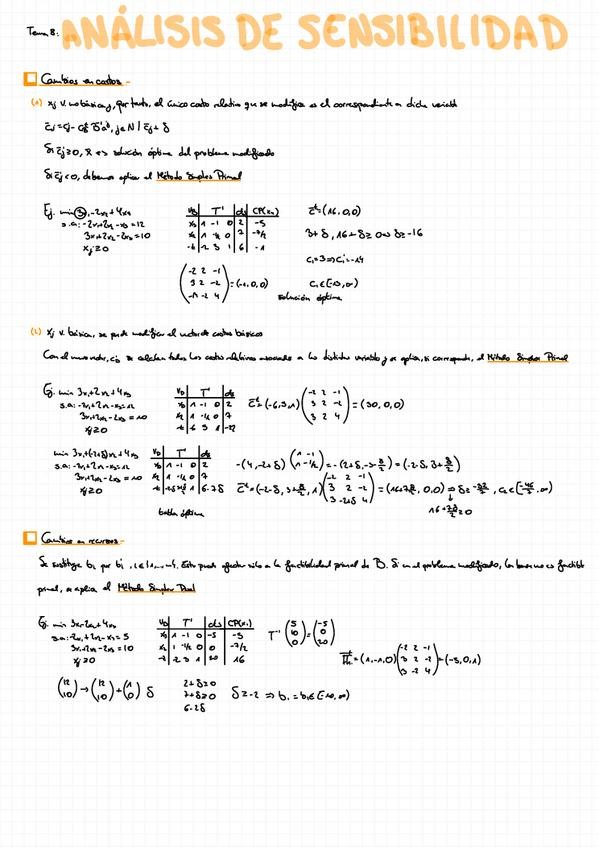 Tema 8: ANÁLISIS DE SENSIBILIDAD
Cambios en costos -
(1) xj v. no básica y, por tanto, el único costo relativo que se modifica es el correspondiente a dicha variable
Si c̄j ≥ 0, x̄ es solución óptima del problema modificado
Si c̄j < 0, debemos aplicar el Método Simplex Primal
Ej. min 3x1 - 2x2 + 4x3
s.a: -2x1 + 2x2 - x3 = 12
3x1 + 2x2 - 2x3 = 10
xj ≥ 0
VB T⁻¹ ds CP(x1)
x3 1 -1 0 2 -5
x2 1 -1/2 0 7 -7/2
c̄t = (16, 0, 0)
3 + δ, 16 + δ ≥ 0 ⇔ δ ≥ -16
(-2 2 -1
3 2 -2
solución óptima
(2) xj v. básica, se puede modificar el vector de costos básicos
Con el nuevo vector, cB se calculan todos los costos relativos asociados a las distintas variables y se aplica, si corresponde, el Método Simplex Primal
Ej. min 3x1 + 2x2 + 4x3
s.a: -2x1 + 2x2 - x3 = 12
3x1 + 2x2 - 2x3 = 10
xj ≥ 0
VB T⁻¹ ds
x3 1 -1 0 2
x2 1 -1/2 0 7
-z 6 3 1 -22
(-2 2 -1
3 2 -2
3 2 4) = (30, 0, 0)
s.a: -2x1 + 2x2 - x3 = 12
3x1 + 2x2 - 2x3 = 10
xj ≥ 0
VB T⁻¹ ds
x3 1 -1 0 2
x2 1 -1/2 0 7
tabla óptima
Cambios en recursos -
Se sustituye bi por b̂i, i ∈ {1, ..., m}. Esto puede afectar sólo a la factibilidad primal de B. Si en el problema modificado, la base no es factible
primal, se aplica el Método Simplex Dual
Ej. min 3x1 - 2x2 + 4x3
s.a: -2x1 + 2x2 - x3 = 5
3x1 + 2x2 - 2x3 = 10
xj ≥ 0
VB T⁻¹ ds CP(x1)
x3 1 -1 0 -5 -5
x2 1 -1/2 0 0 -7/2
-z -2 3 1 20 16
T⁻¹ (5 10 0) = (-5 0 20)
(12 10) → (12 10) + (1 0) δ
2 + δ ≥ 0
7 + δ ≥ 0
6 - 2δ